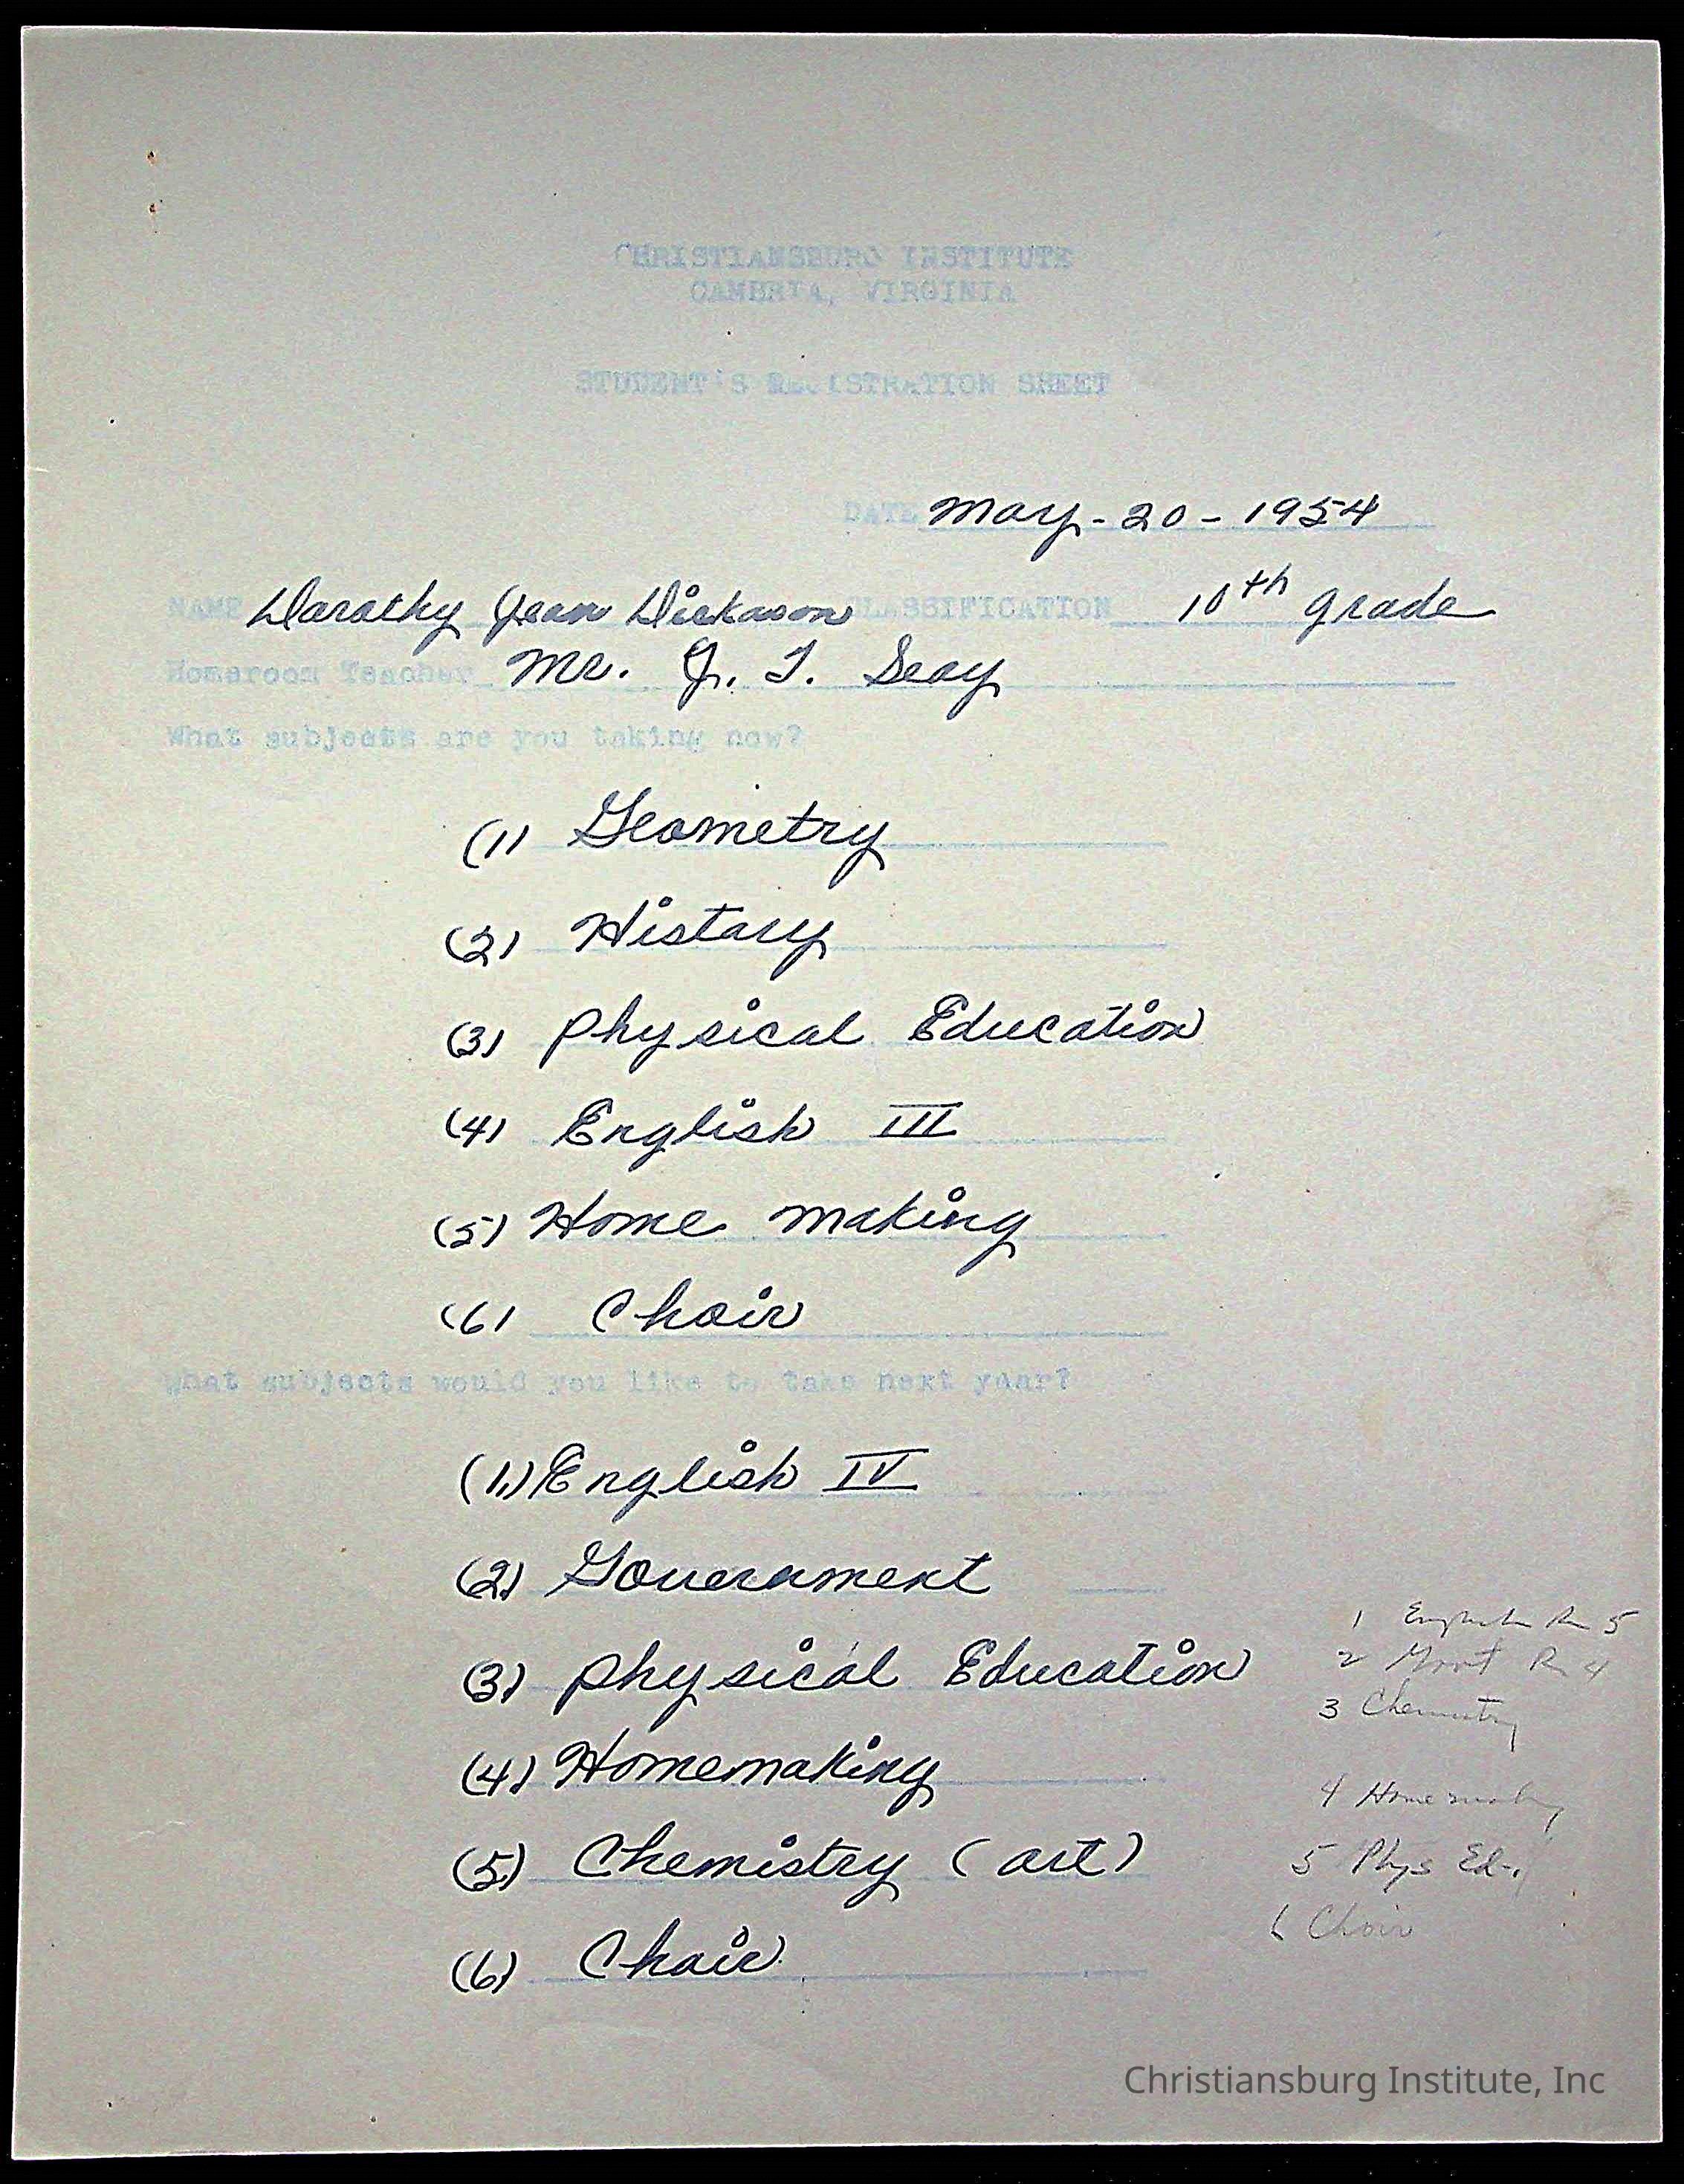 CHRISTIANSBURG INSTITUTE
CAMBRIA, VIRGINIA
STUDENT'S REGISTRATION SHEET
DATE May-20-1954
NAME Dorothy Jean Dickason CLASSIFICATION 10th grade
Homeroom Teacher Mr. J. T. Seay
What subjects are you taking now?
(1) Geometry
(2) History
(3) Physical Education
(4) English III
(5) Home making
(6) Choir
What subjects would you like to take next year?
(1.) English IV
(2) Government
(3) Physical Education
(4) Homemaking
(5) Chemistry (art)
(6) Choir
1 English Rm 5
2 Govt R 4
3 Chemistry
4 Homemaking
5 Phys Ed.
6 Choir
Christiansburg Institute, Inc